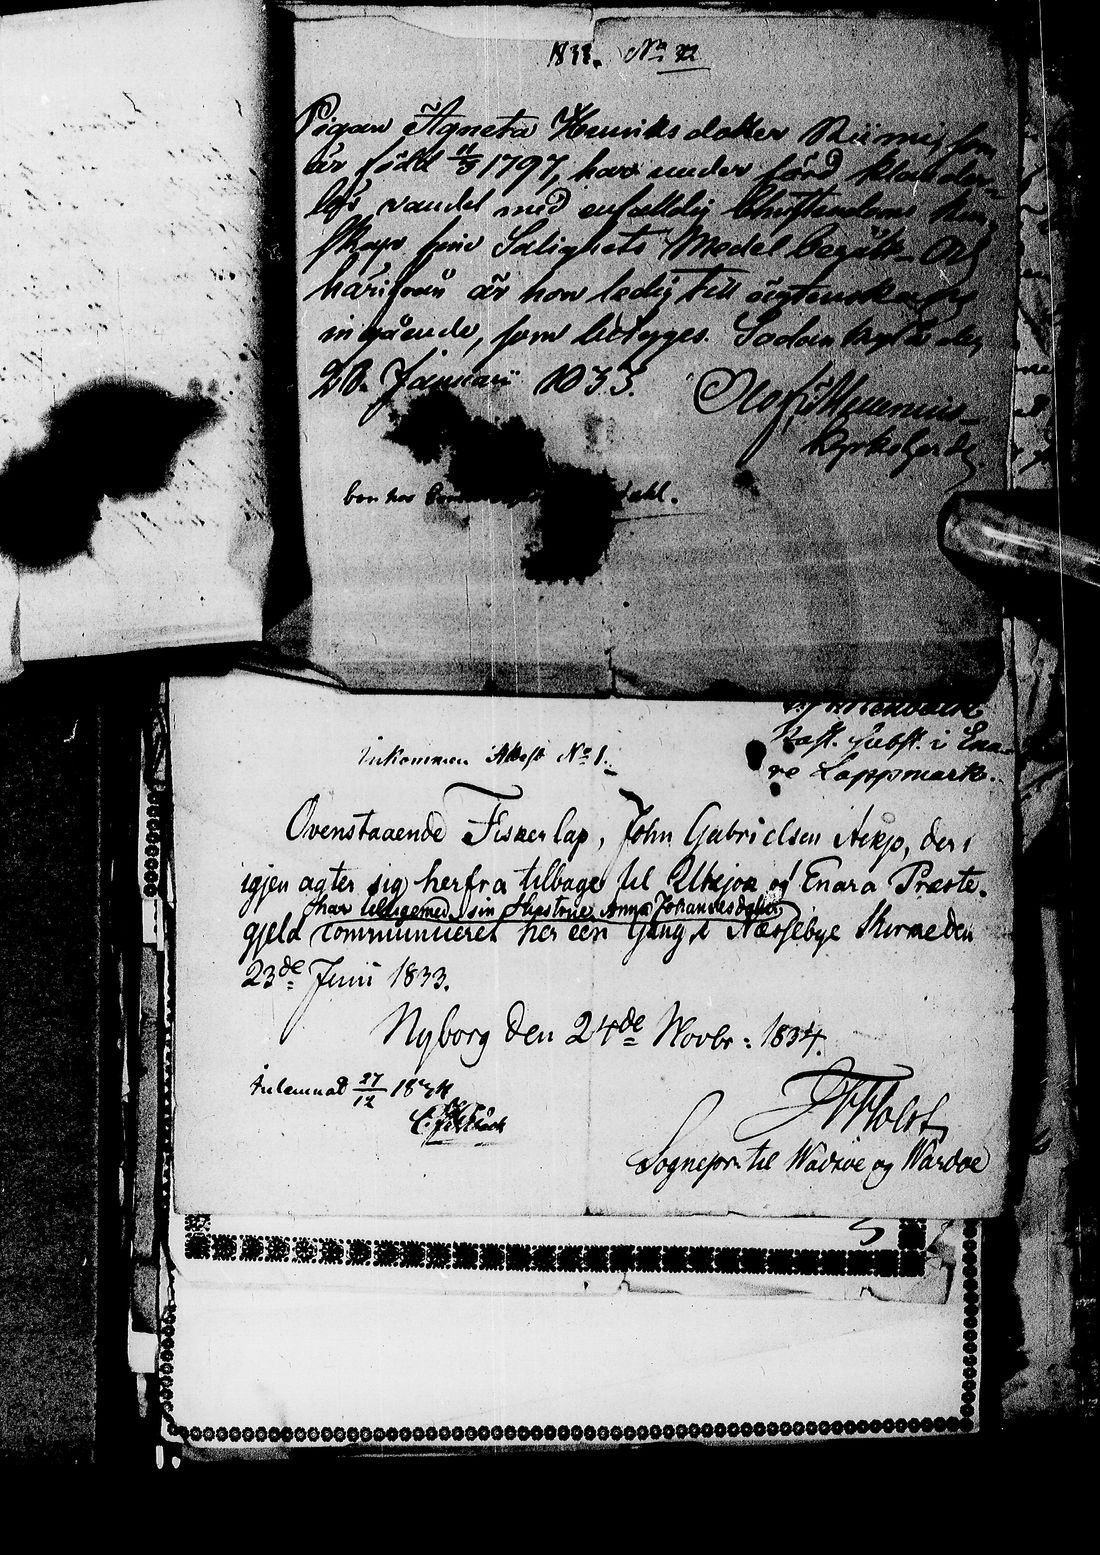 1833. No 22
Pigan Agneta Henriksdotter Niemi, som
är född 11/3 1797, har under förd klander-
lös vandel med enfaldig Christendoms kun
skap sine Salighets Medel begått - Och
härifrån är hon ledig till ägtenskaps
ingående, som betygges. Sodankylä den
28 Januarii 1833.
Olof
Kyrkoherde
bor hos
Past. Subst. i Ena-
re Lappmark.
Inkommen Attest No 1.
Ovenstaaende Fiskerlap, John Gabrielsen Aikjo, der i
igjen agter sig herfra tilbage til Utzjok og Enara Præste-
har tilligemed sin Hustrue Anna Johannesdatter
gjeld communiceret her een Gang i Næssebye Kirke den
23de Junii 1833.
Nyborg den 24de Novbr: 1834.
Inlemnad 27/12 1834
Holst
Sognepr. til Wadsøe og Wardøe